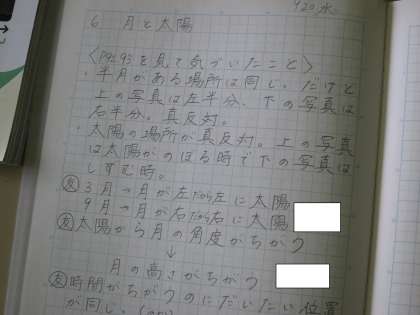 9/20 水
6 月と太陽
〈P92.93を見て気づいたこと〉
・半月がある場所は同じ。だけど
上の写真は左半分、下の写真は
右半分。真反対。
・太陽の場所が真反対。上の写真
は太陽がのぼる時で下の写真は
しずむ時。
友 3月→月が左だから左に太陽
9月→月が右だから右に太陽
友 太陽から月の角度がちがう
↓
月の高さがちがう
友 時間がちがうのにだいたい位置
が同じ。